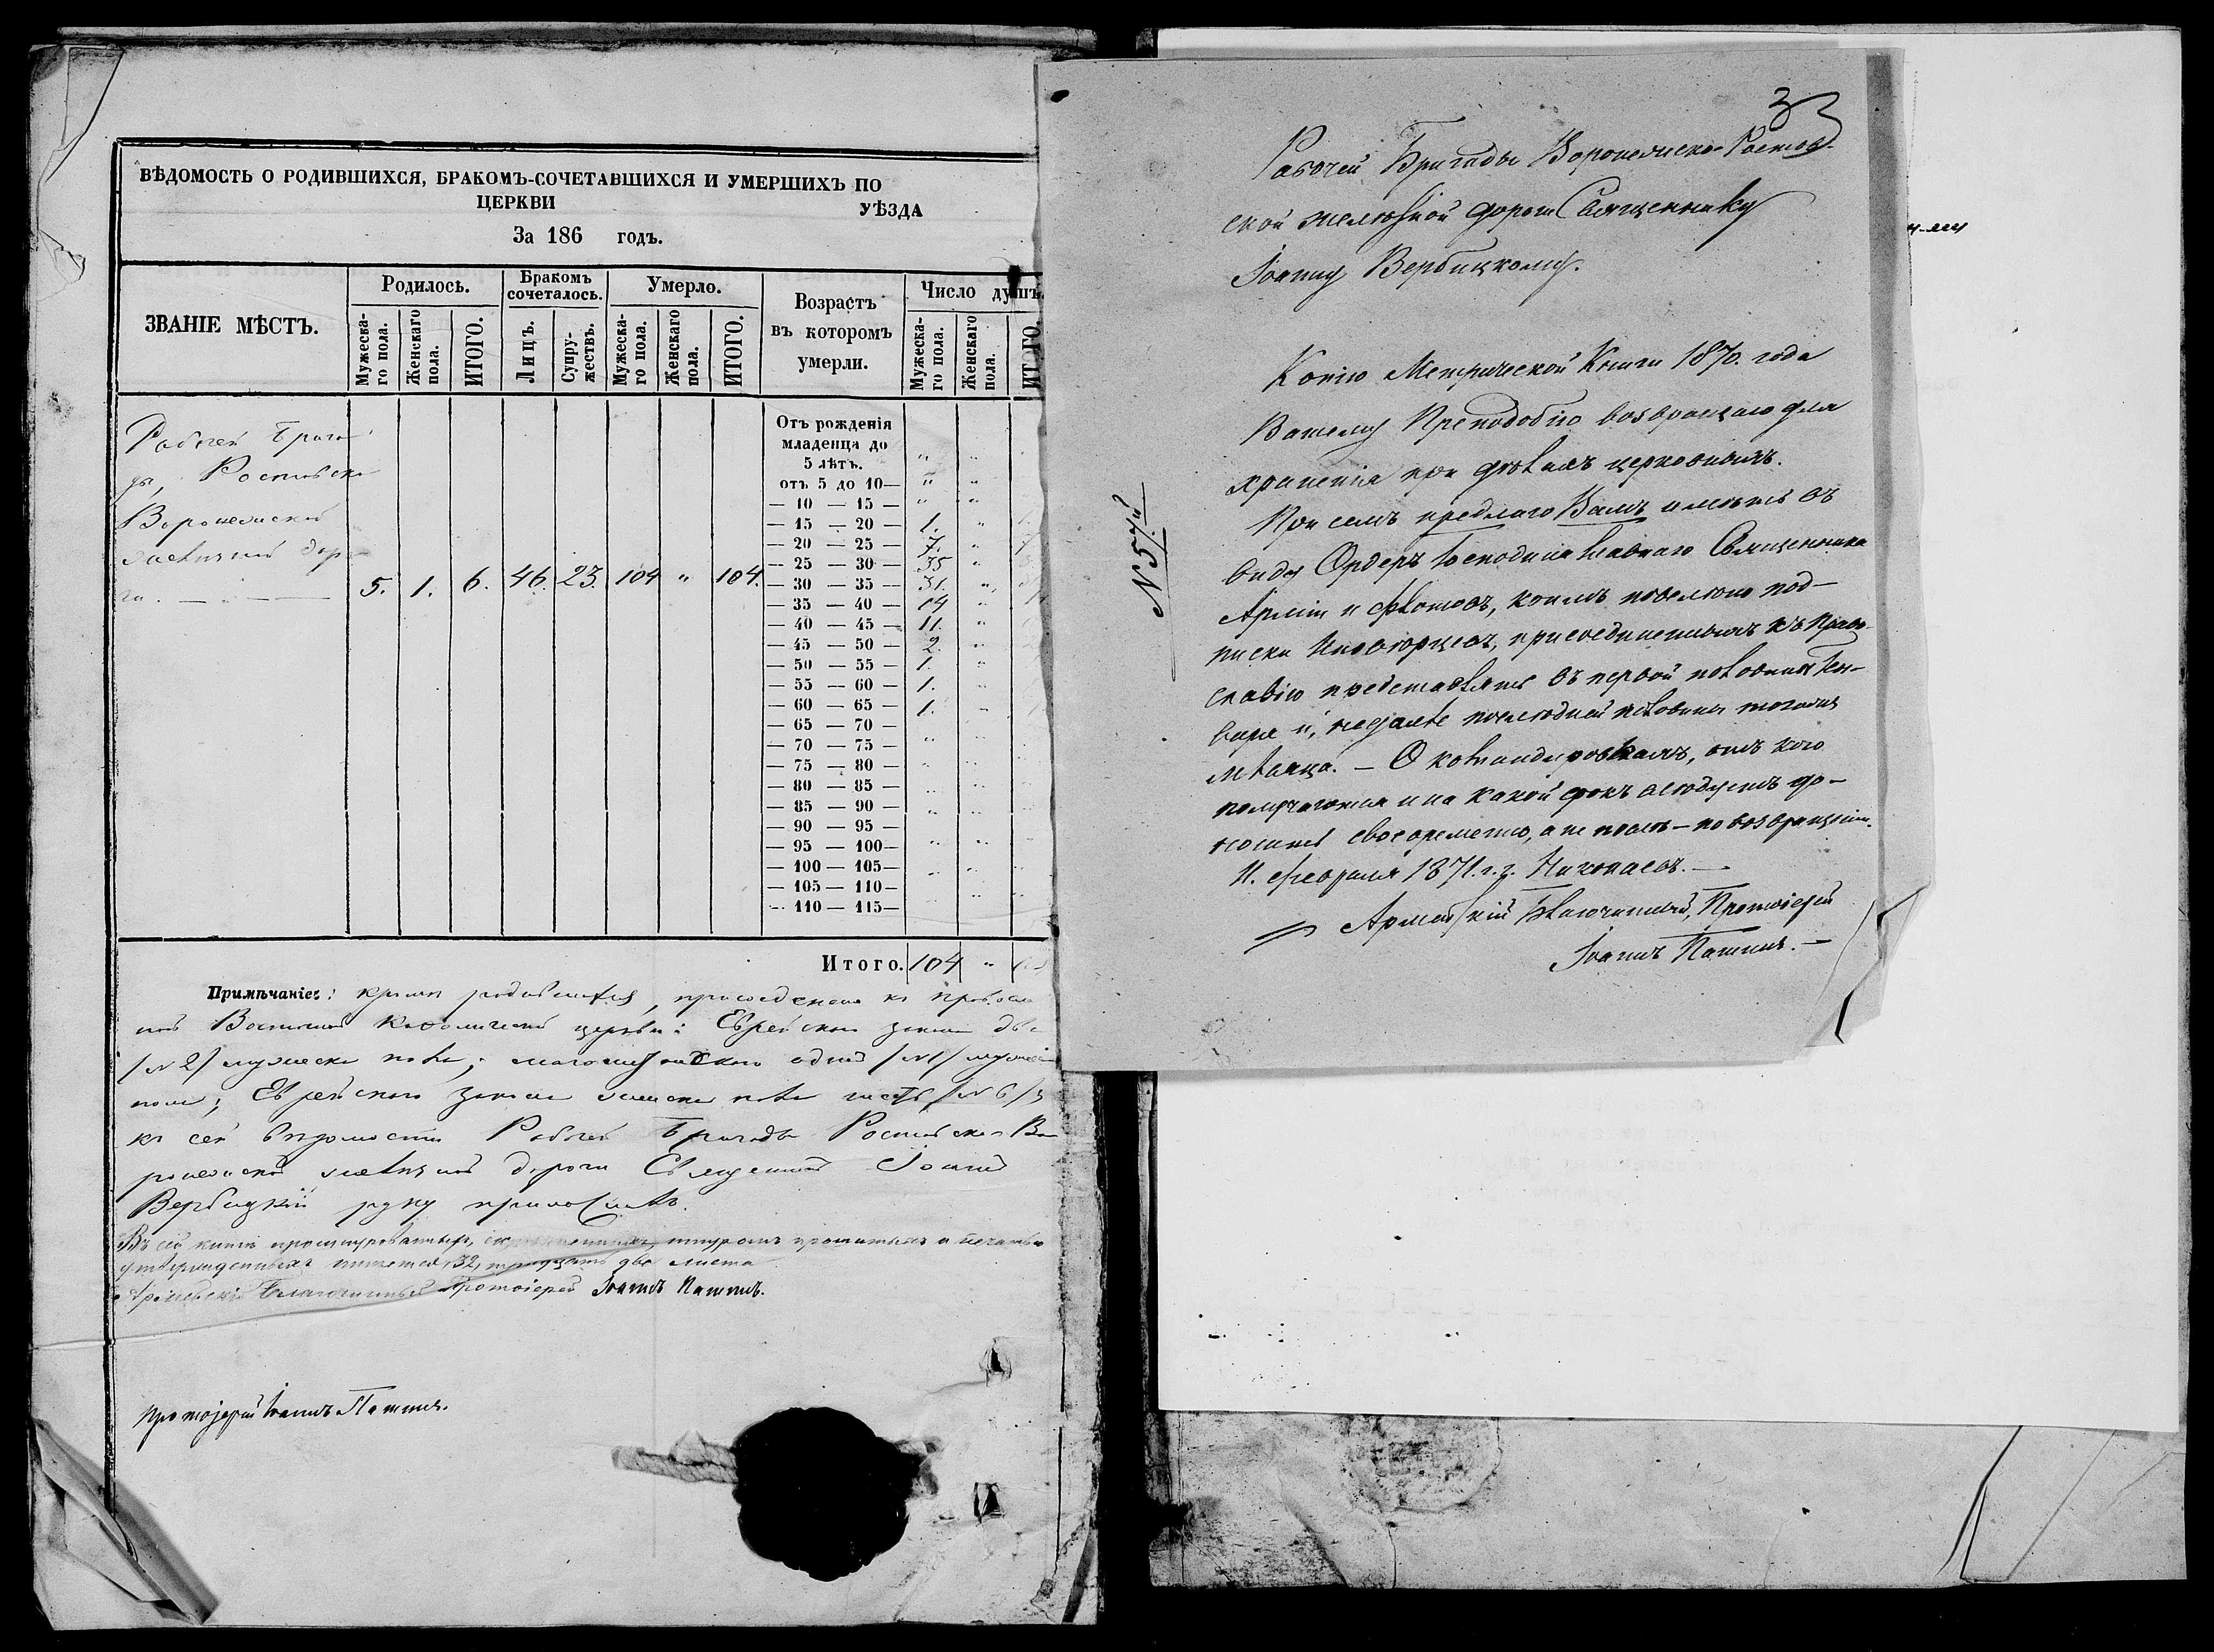 ВѢДОМОСТЬ О РОДИВШИХСЯ, БРАКОМЪ-СОЧЕТАВШИХСЯ И УМЕРШИХЪ ПО
ЦЕРКВИ УѢЗДА
За 186 годъ.
ЗВАНІЕ МѢСТЪ.
Родилось.
Мужеска-
го пола.
Женскаго
пола.
ИТОГО.
Бракомъ
сочеталось.
Лицъ.
Супру-
жествъ.
Умерло.
Мужеска-
го пола.
Женскаго
пола.
ИТОГО.
Возрастъ
въ которомъ
умерли.
Число душъ.
Мужеска-
го пола.
Женскаго
пола.
ИТОГО.
Рабочей Брига-
ды, Ростовско
Воронежской
желѣзной доро-
ги.
5. 1. 6. 46. 23. 104 " 104.
Отъ рожденія
младенца до
5 лѣтъ. " "
отъ 5 до 10— " "
— 10 — 15 — " "
— 15 — 20 — 1. "
— 20 — 25 — 7. "
— 25 — 30 — 35 "
— 30 — 35 — 31. "
— 35 — 40 — 14 "
— 40 — 45 — 11. "
— 45 — 50 — 2. "
— 50 — 55 — 1. "
— 55 — 60 — 1. "
— 60 — 65 — 1. "
— 65 — 70 —
— 70 — 75 — " "
— 75 — 80 — " "
— 80 — 85 — " "
— 85 — 90 — " "
— 90 — 95 —
— 95 — 100— " "
— 100 — 105— " "
— 105 — 110—
— 110 — 115— " "
Итого. 104 "
Примѣчаніе: кромѣ родившихся, присоединено къ православ
ной Восточной Каѳолической церкви: Еврейскаго закона два
/№ 2/ мужеска пола; магометанскаго одинъ /№ 1/ мужеска
пола; Еврейскаго закона женска пола шесть /№ 6/
къ сей вѣдомости Рабочей Бригады Ростовско-Во
ронежской желѣзной дороги Священникъ Іоаннъ
Вербицкій руку приложилъ.
Въ сей книгѣ прошнурованныхъ, шнуромъ прошитыхъ и печатью
утвержденныхъ имѣется, 32, тридцать два листа
Армейскій Благочинный Протоіерей Іоаннъ Пашинъ.
Протоіерей Іоаннъ Пашинъ.
33
Рабочей Бригады Воронежско-Ростов-
ской желѣзной дороги Священнику
Іоанну Вербицкому.
№ 57й
Копію Метрической Книги 1870. года
Вашему Преподобію возвращаю для
храненія при дѣлахъ церковныхъ.
При семъ предлагаю Вамъ имѣть въ
виду Ордеръ Господина Главнаго Священника
Арміи и Флотовъ, коимъ повелѣно под-
писки Иновѣрцевъ, присоединенныхъ къ Право-
славію представлять въ первой половинѣ Ген-
варя и, не далѣе послѣдней половины тогоже
мѣсяца. — О командировкахъ, отъ кого
получаются и на какой срокъ слѣдуетъ до-
носить своевременно, а не послѣ — по возвращеніи.
11. февраля 1871. г. г. Николаевъ. —
Армейскій Благочинный, Протоіерей
Іоаннъ Пашинъ. —